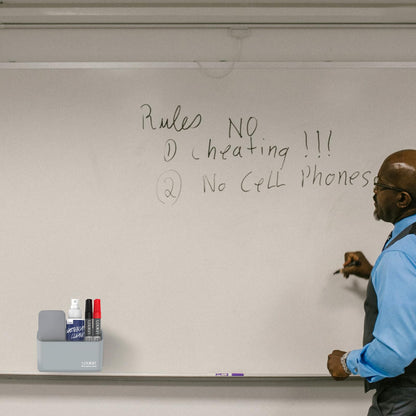 Rules
NO
① cheating !!!
② No Cell Phones